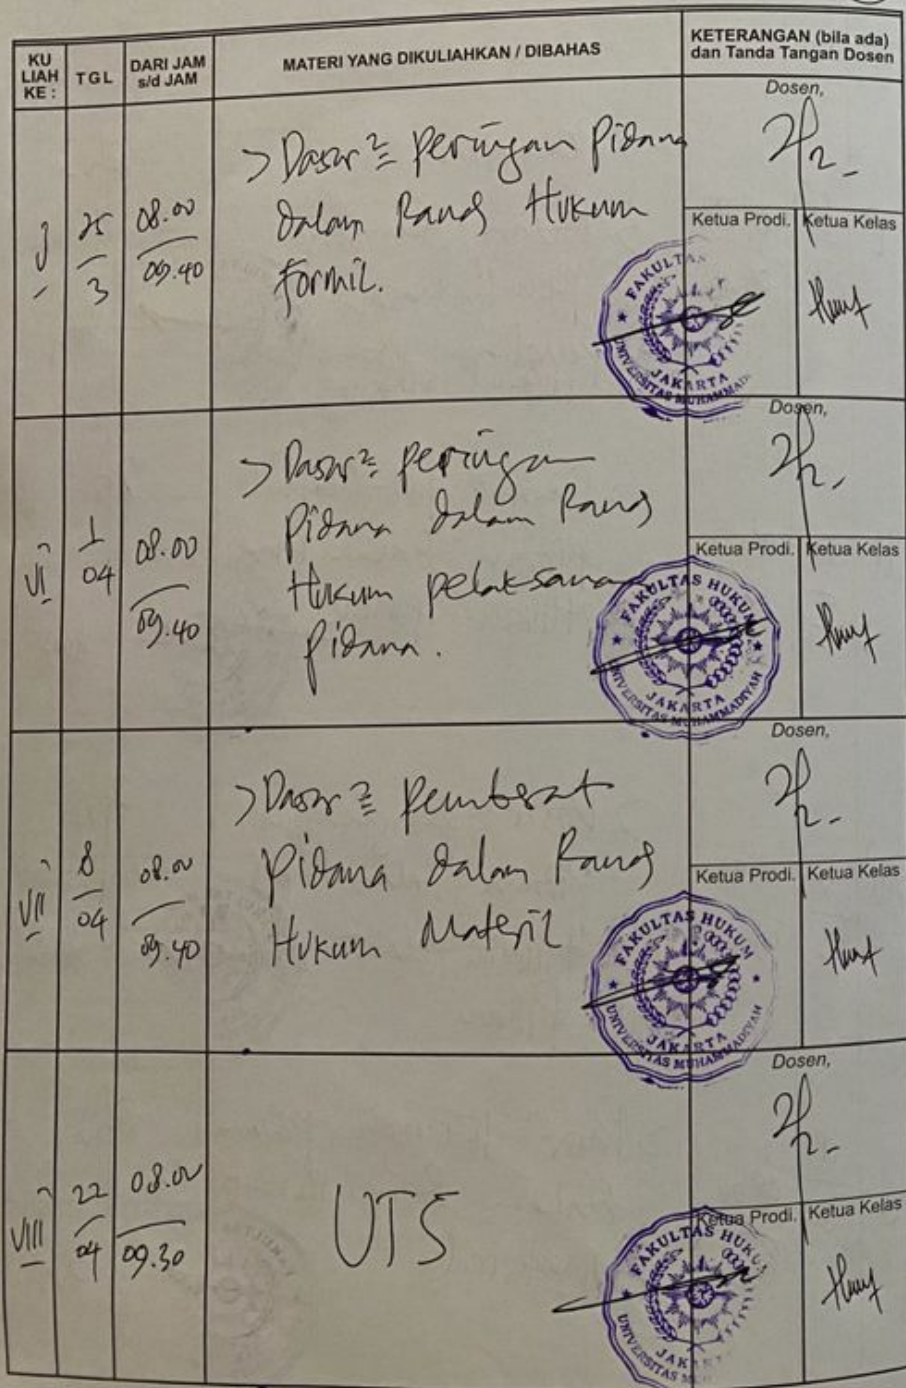 KU LIAH KE :
TGL
DARI JAM s/d JAM
MATERI YANG DIKULIAHKAN / DIBAHAS
KETERANGAN (bila ada) dan Tanda Tangan Dosen
25/3
08.00
09.40
> Dasar² peringan pidana
dalam Ranah Hukum
formil.
Dosen,
Ketua Prodi.
Ketua Kelas
FAKULTAS
UNIVERSITAS MUHAMMAD
JAKARTA
VI
1/04
08.00
09.40
> Dasar² peringan
pidana dalam Ranah
Hukum pelaksana
pidana.
Dosen,
Ketua Prodi.
Ketua Kelas
FAKULTAS HUKUM
UNIVERSITAS MUHAMMADIYAH
JAKARTA
VII
8/04
08.00
09.40
> Dasar² pemberat
pidana dalam Ranah
Hukum Materil
Dosen,
Ketua Prodi.
Ketua Kelas
FAKULTAS HUKUM
UNIVERSITAS MUHAMMADIYAH
JAKARTA
VIII
22/04
08.00
09.30
UTS
Dosen,
Ketua Prodi.
Ketua Kelas
FAKULTAS HUKUM
UNIVERSITAS
JAKAR